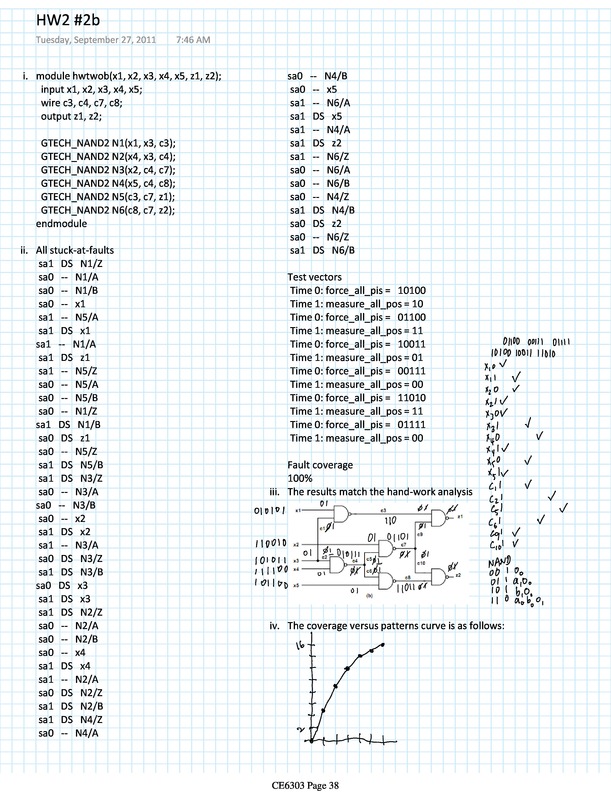 HW2 #2b
Tuesday, September 27, 2011 7:46 AM
i. module hwtwob(x1, x2, x3, x4, x5, z1, z2);
input x1, x2, x3, x4, x5;
wire c3, c4, c7, c8;
output z1, z2;
GTECH_NAND2 N1(x1, x3, c3);
GTECH_NAND2 N2(x4, x3, c4);
GTECH_NAND2 N3(x2, c4, c7);
GTECH_NAND2 N4(x5, c4, c8);
GTECH_NAND2 N5(c3, c7, z1);
GTECH_NAND2 N6(c8, c7, z2);
endmodule
ii. All stuck-at-faults
sa1 DS N1/Z
sa0 -- N1/A
sa0 -- N1/B
sa0 -- x1
sa1 -- N5/A
sa1 DS x1
sa1 -- N1/A
sa1 DS z1
sa1 -- N5/Z
sa0 -- N5/A
sa0 -- N5/B
sa0 -- N1/Z
sa1 DS N1/B
sa0 DS z1
sa0 -- N5/Z
sa1 DS N5/B
sa1 DS N3/Z
sa0 -- N3/A
sa0 -- N3/B
sa0 -- x2
sa1 DS x2
sa1 -- N3/A
sa0 DS N3/Z
sa1 DS N3/B
sa0 DS x3
sa1 DS x3
sa1 DS N2/Z
sa0 -- N2/A
sa0 -- N2/B
sa0 -- x4
sa1 DS x4
sa1 -- N2/A
sa0 DS N2/Z
sa1 DS N2/B
sa1 DS N4/Z
sa0 -- N4/A
sa0 -- N4/B
sa0 -- x5
sa1 -- N6/A
sa1 DS x5
sa1 -- N4/A
sa1 DS z2
sa1 -- N6/Z
sa0 -- N6/A
sa0 -- N6/B
sa0 -- N4/Z
sa1 DS N4/B
sa0 DS z2
sa0 -- N6/Z
sa1 DS N6/B
Test vectors
Time 0: force_all_pis = 10100
Time 1: measure_all_pos = 10
Time 0: force_all_pis = 01100
Time 1: measure_all_pos = 11
Time 0: force_all_pis = 10011
Time 1: measure_all_pos = 01
Time 0: force_all_pis = 00111
Time 1: measure_all_pos = 00
Time 0: force_all_pis = 11010
Time 1: measure_all_pos = 11
Time 0: force_all_pis = 01111
Time 1: measure_all_pos = 00
Fault coverage
100%
iii. The results match the hand-work analysis
010101 x1
110010 x2
101011 x3
111100 x4
101100 x5
c3
110
01101
c7
010111
c4
c8
11011
c9
c10
z1
z2
(b)
iv. The coverage versus patterns curve is as follows:
16
2
01100 00111 01111
10100 10011 11010
x10 ✓
x11 ✓
x20 ✓
x21 ✓
x30 ✓
x31 ✓
x40 ✓
x41 ✓
x50 ✓
x51 ✓
c11 ✓
c21 ✓
c51 ✓
c61 ✓
c91 ✓
c101 ✓
NAND
00 1 0o
01 1 a,0o
10 1 b,0o
11 0 a0 b0 01
CE6303 Page 38